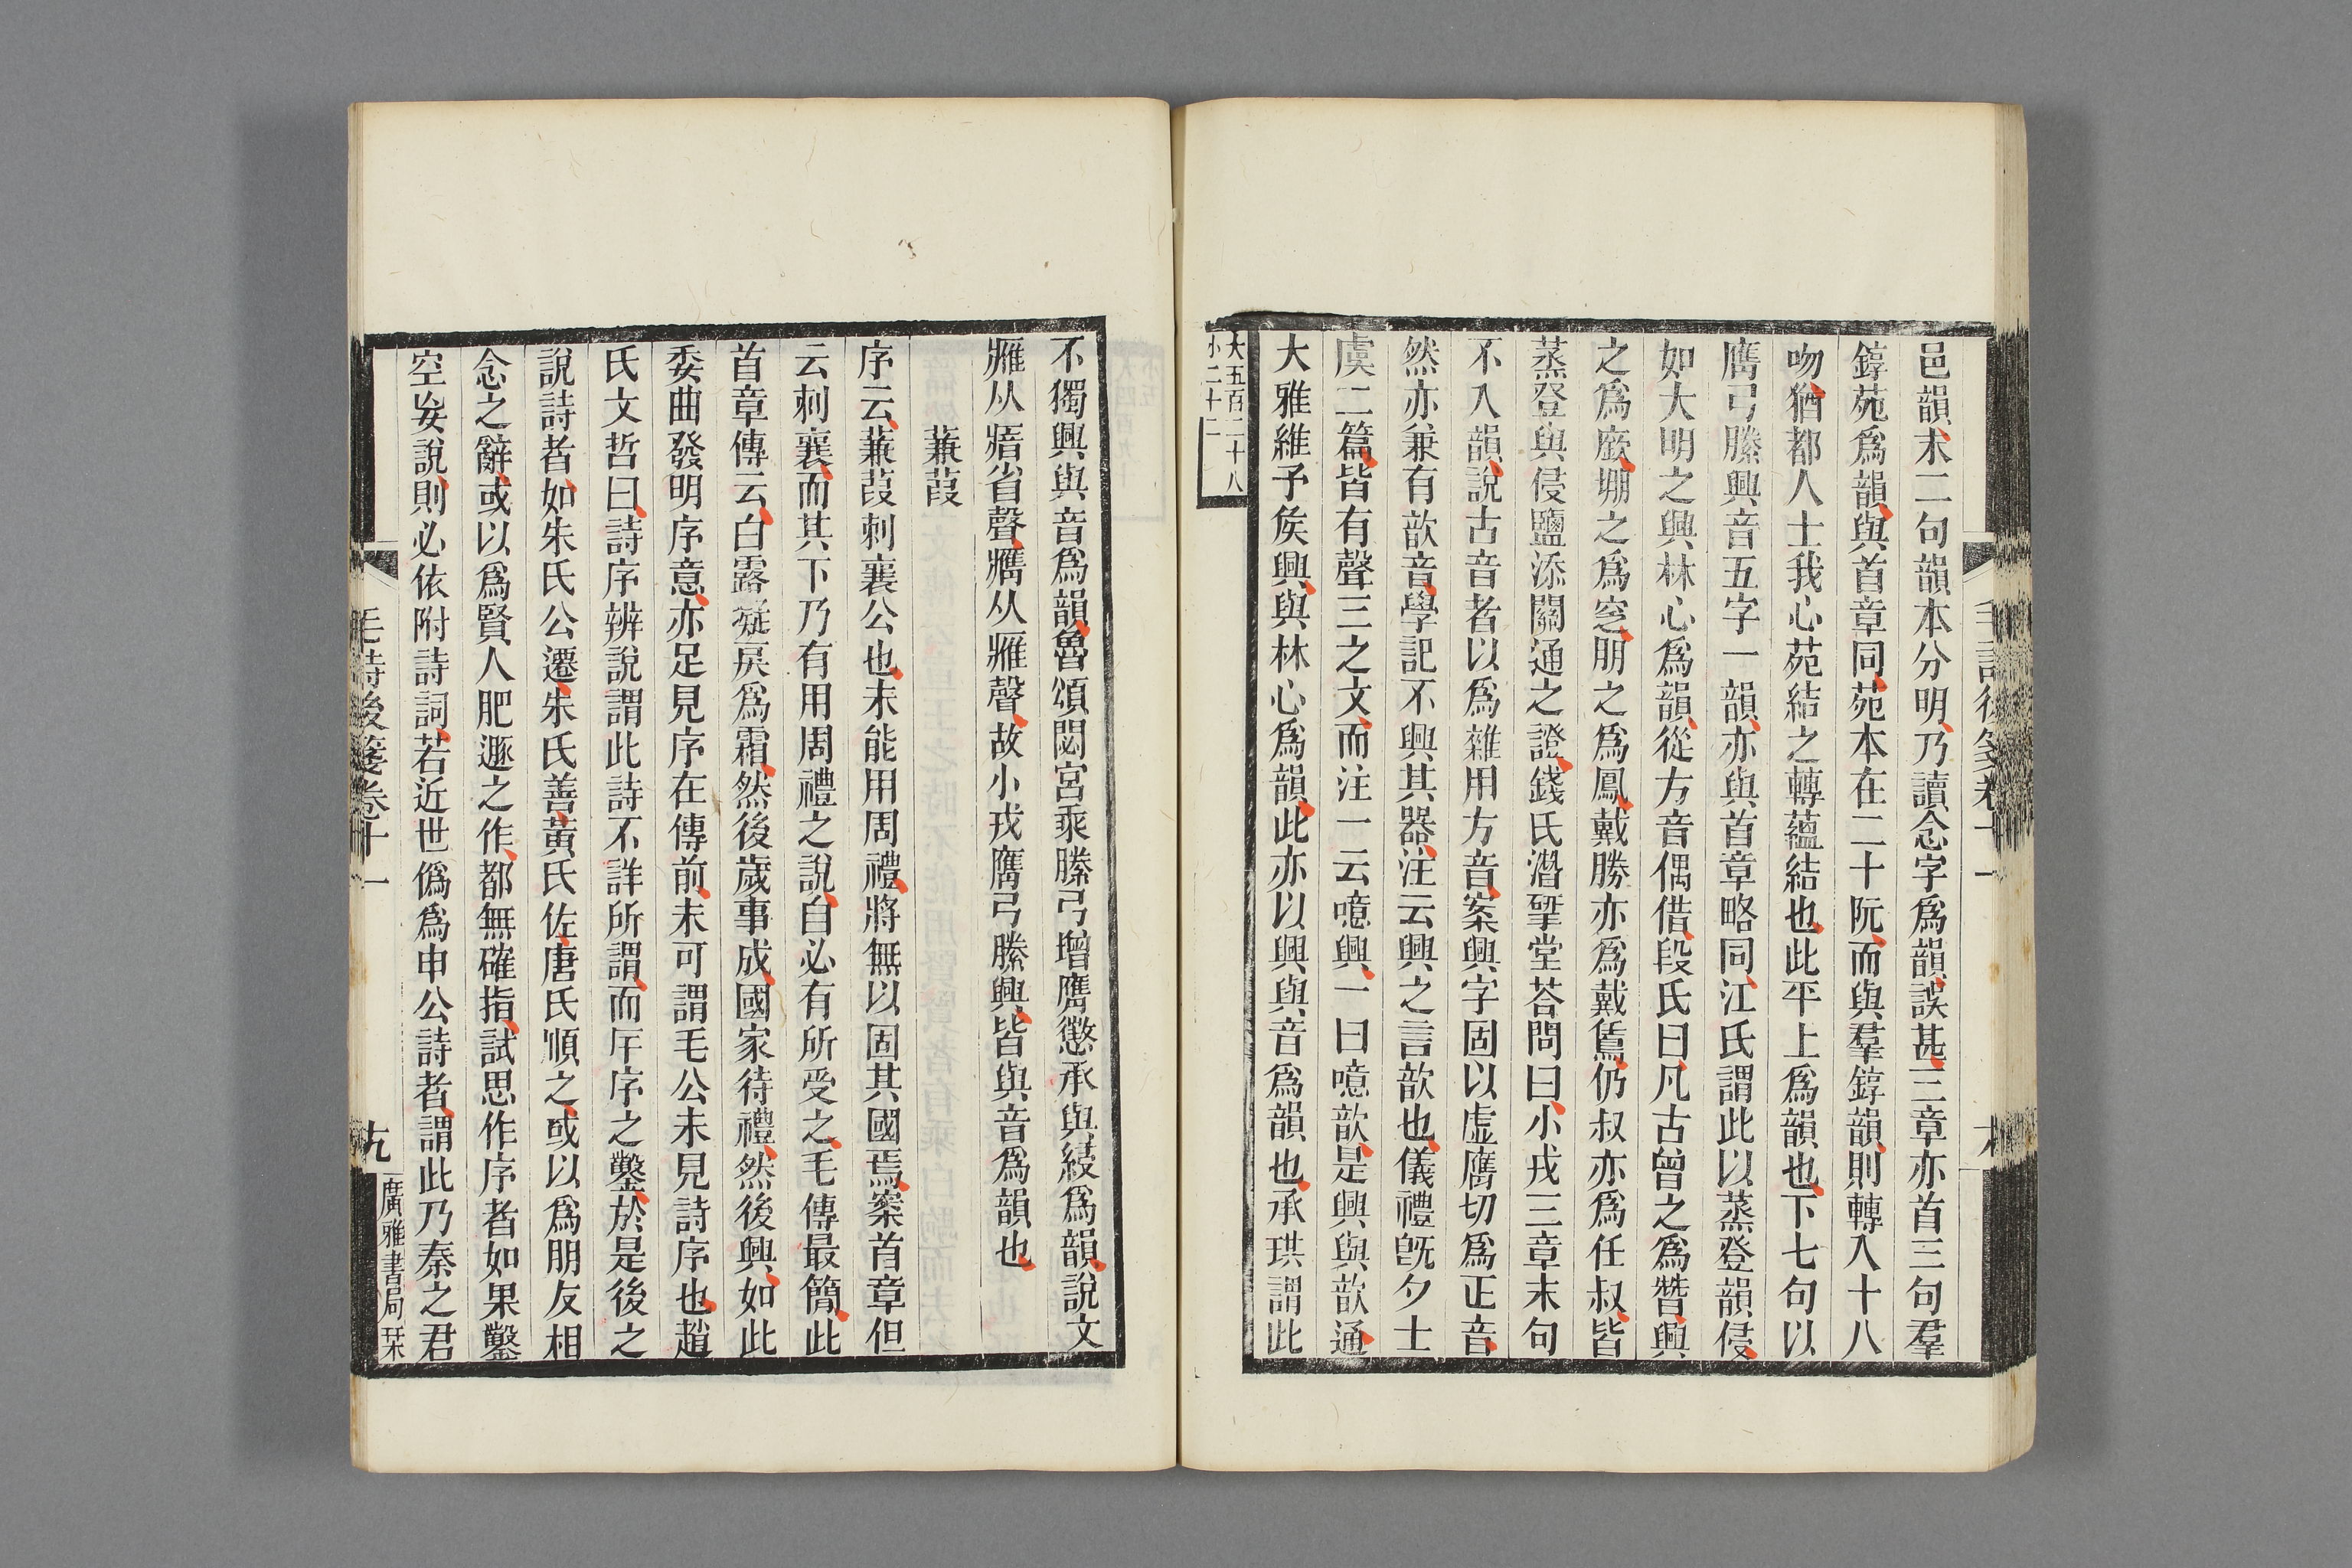 邑韻末二句韻本分明乃讀念字爲韻誤甚三章亦首三句羣
錞苑爲韻與首章同苑本在二十阮而與羣錞韻則轉入十八
吻猶都人士我心苑結之轉蘊結也此平上爲韻也下七句以
膺弓縢興音五字一韻亦與首章略同江氏謂此以蒸登韻侵
如大明之興林心爲韻從方音偶借段氏曰凡古曾之爲朁興
之爲廞堋之爲窆朋之爲鳳戴勝亦爲戴鵀仍叔亦爲任叔皆
蒸登與侵鹽添關通之證錢氏潛揅堂荅問曰小戎三章末句
不入韻說古音者以爲雜用方音案興字固以虛膺切爲正音
然亦兼有歆音學記不興其器注云興之言歆也儀禮旣夕士
虞二篇皆有聲三之文而注一云噫興一曰噫歆是興與歆通
大雅維予矦興與林心爲韻此亦以興與音爲韻也承珙謂此
大五百二十八
小二十二
不獨興與音爲韻魯頌閟宮乘縢弓增膺懲承與綅爲韻說文
雁从瘖省聲鷹从雁聲故小戎膺弓縢興皆與音爲韻也
蒹葭
序云蒹葭刺襄公也未能用周禮將無以固其國焉案首章但
云刺襄而其下乃有用周禮之說自必有所受之毛傳最簡此
首章傳云白露凝戾爲霜然後歲事成國家待禮然後興如此
委曲發明序意亦足見序在傳前未可謂毛公未見詩序也趙
氏文哲曰詩序辨說謂此詩不詳所謂而斥序之鑿於是後之
說詩者如朱氏公遷朱氏善黃氏佐唐氏順之或以爲朋友相
念之辭或以爲賢人肥遯之作都無確指試思作序者如果鑿
空妄說則必依附詩詞若近世僞爲申公詩者謂此乃秦之君
毛詩後箋卷十一
九
廣雅書局栞